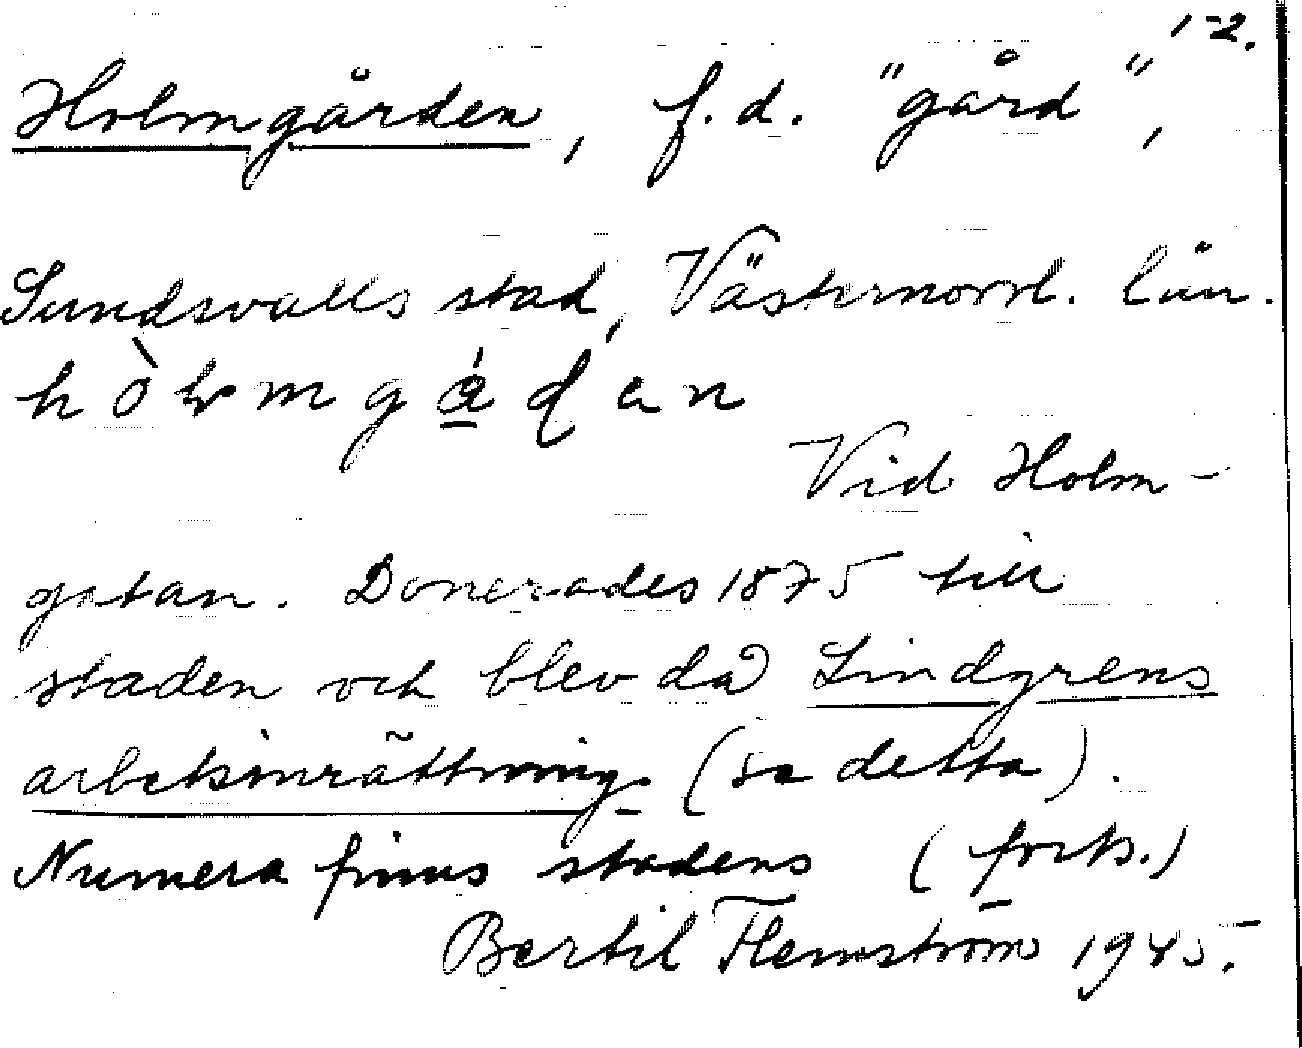 1-2.
Holmgården, f.d. "gård",
Sundsvalls stad, Västernorrl. län.
Vid Holm-
gatan. Donerades 1875 till
staden och blev då Lindgrens
arbetsinrättning (se detta).
Numera finns stadens (forts.)
Bertil Flemström 1945.